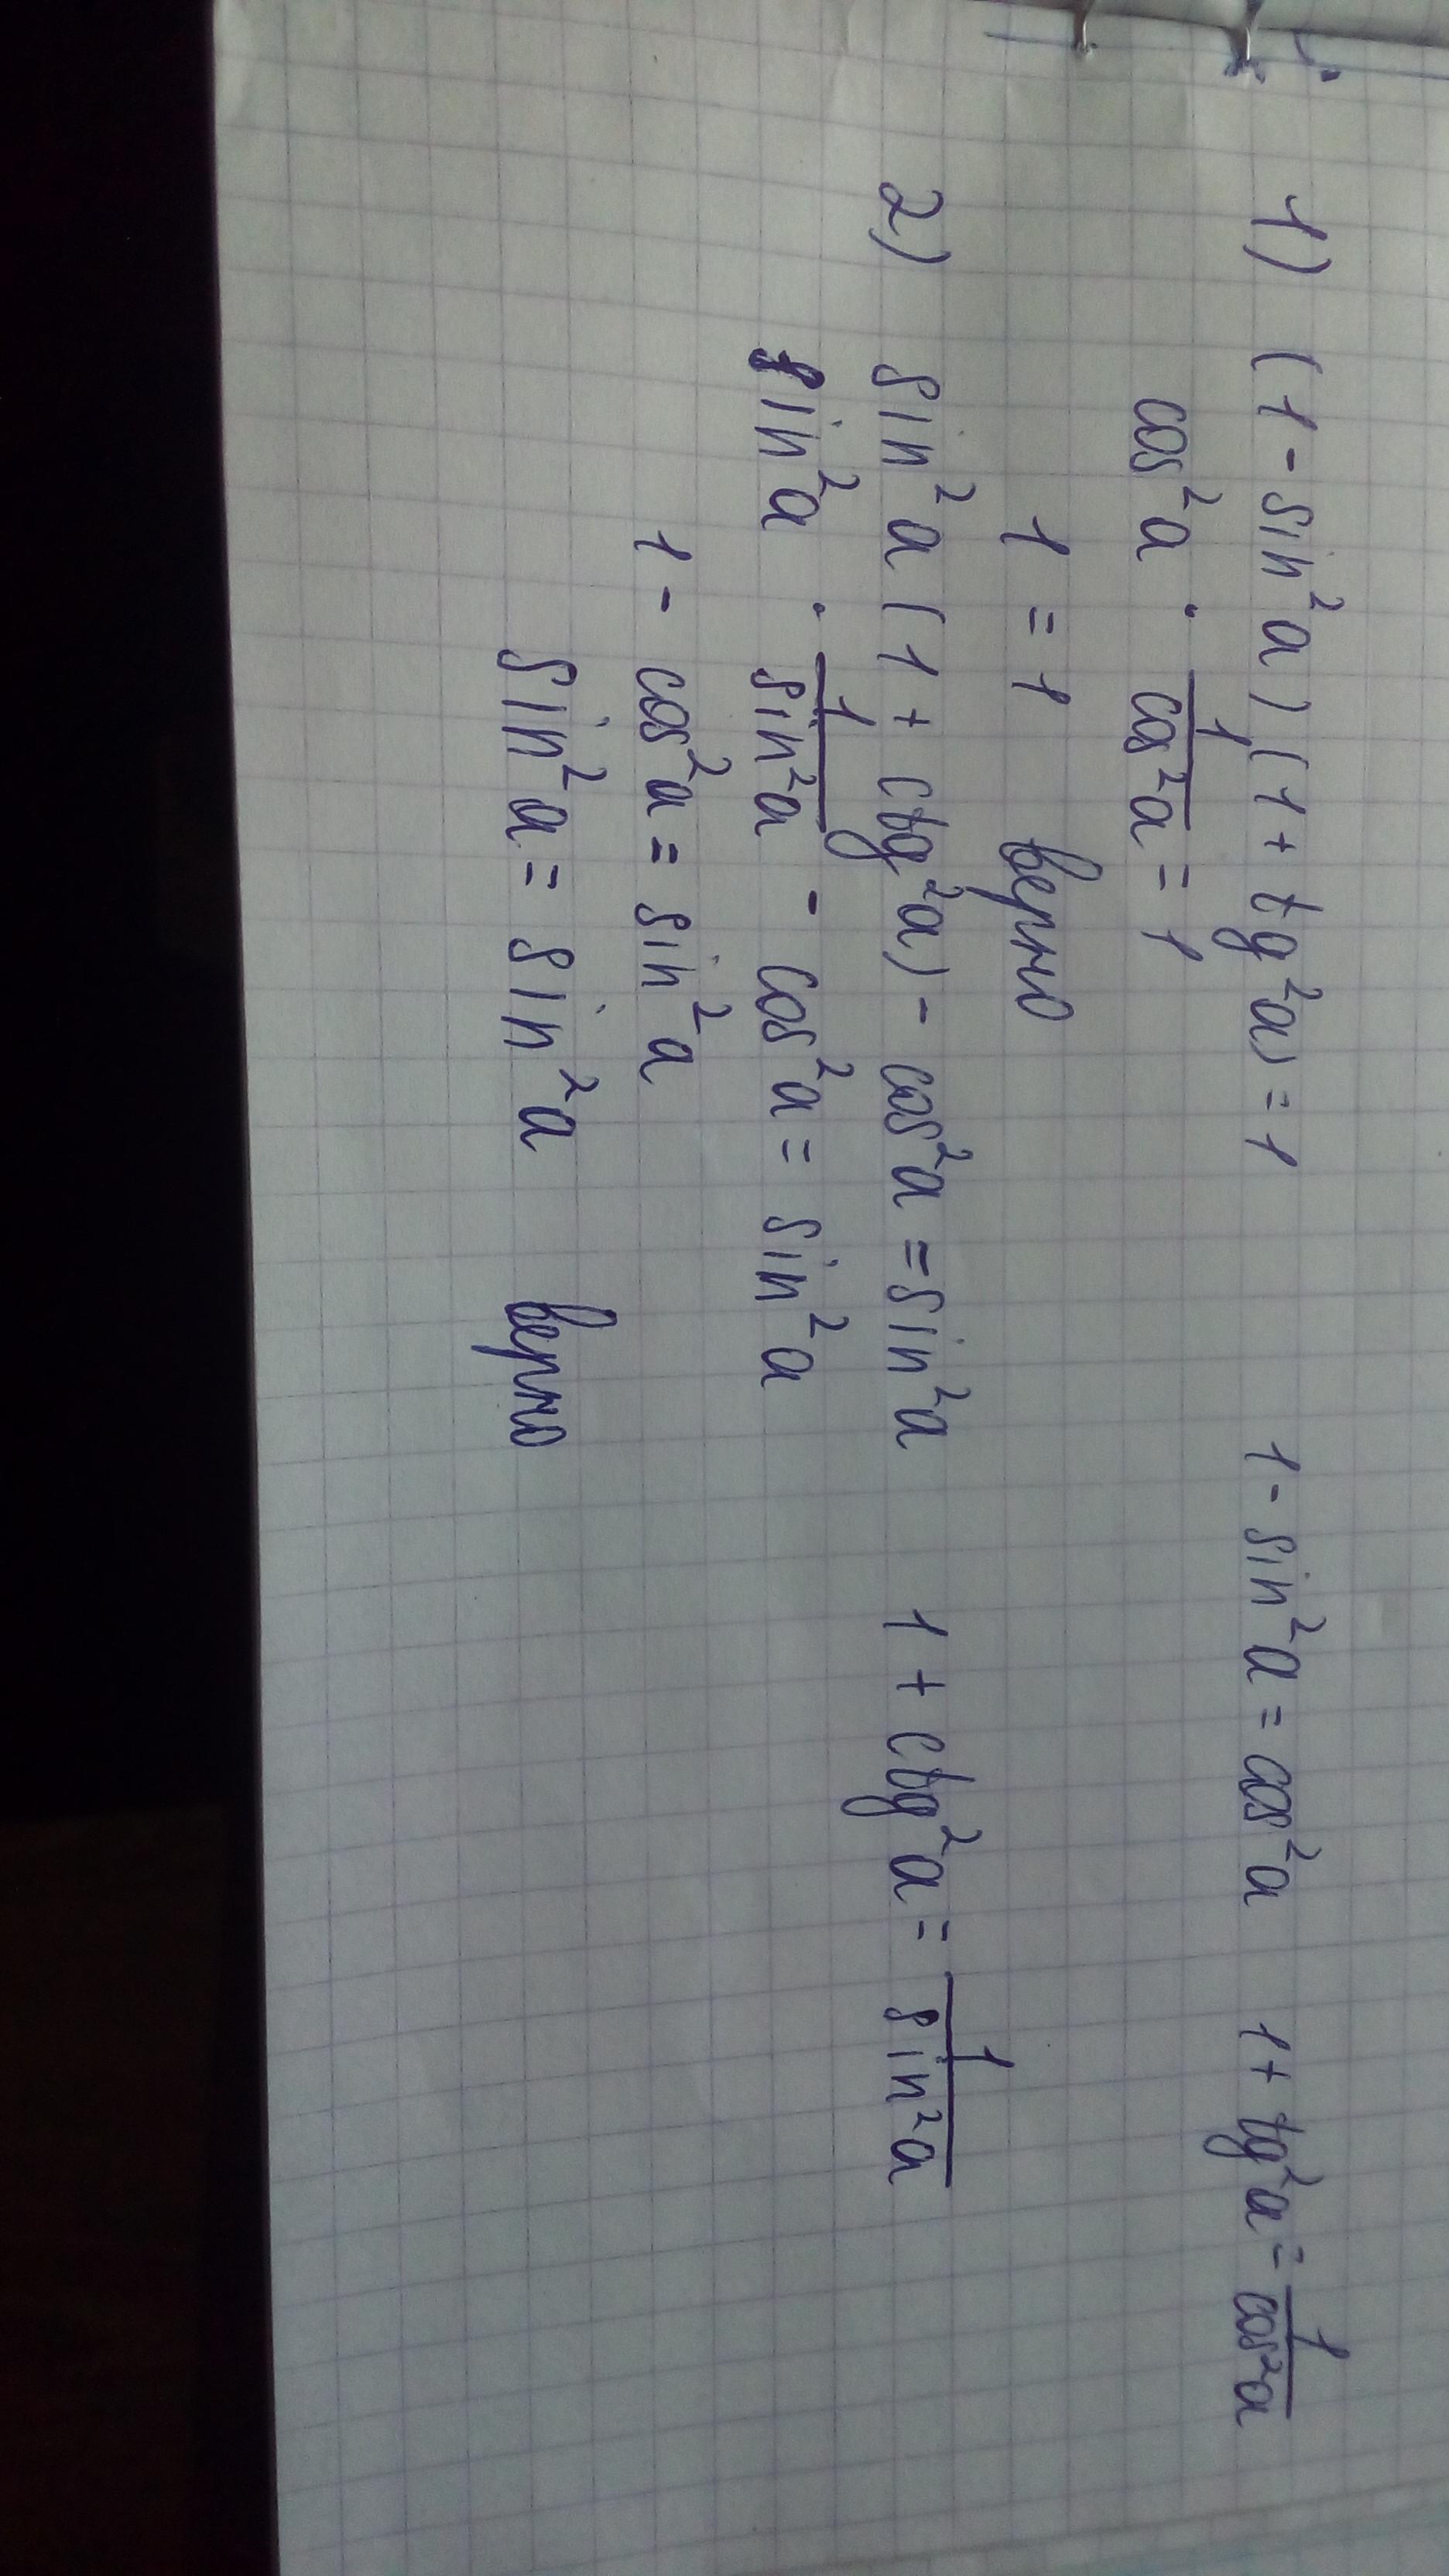 1) (1 - sin²a)(1 + tg²a) = 1 1 - sin²a = cos²a 1 + tg²a = 1/cos²a
cos²a · 1/cos²a = 1
1 = 1 верно
2) sin²a (1 + ctg²a) - cos²a = sin²a 1 + ctg²a = 1/sin²a
sin²a · 1/sin²a - cos²a = sin²a
1 - cos²a = sin²a
sin²a = sin²a верно